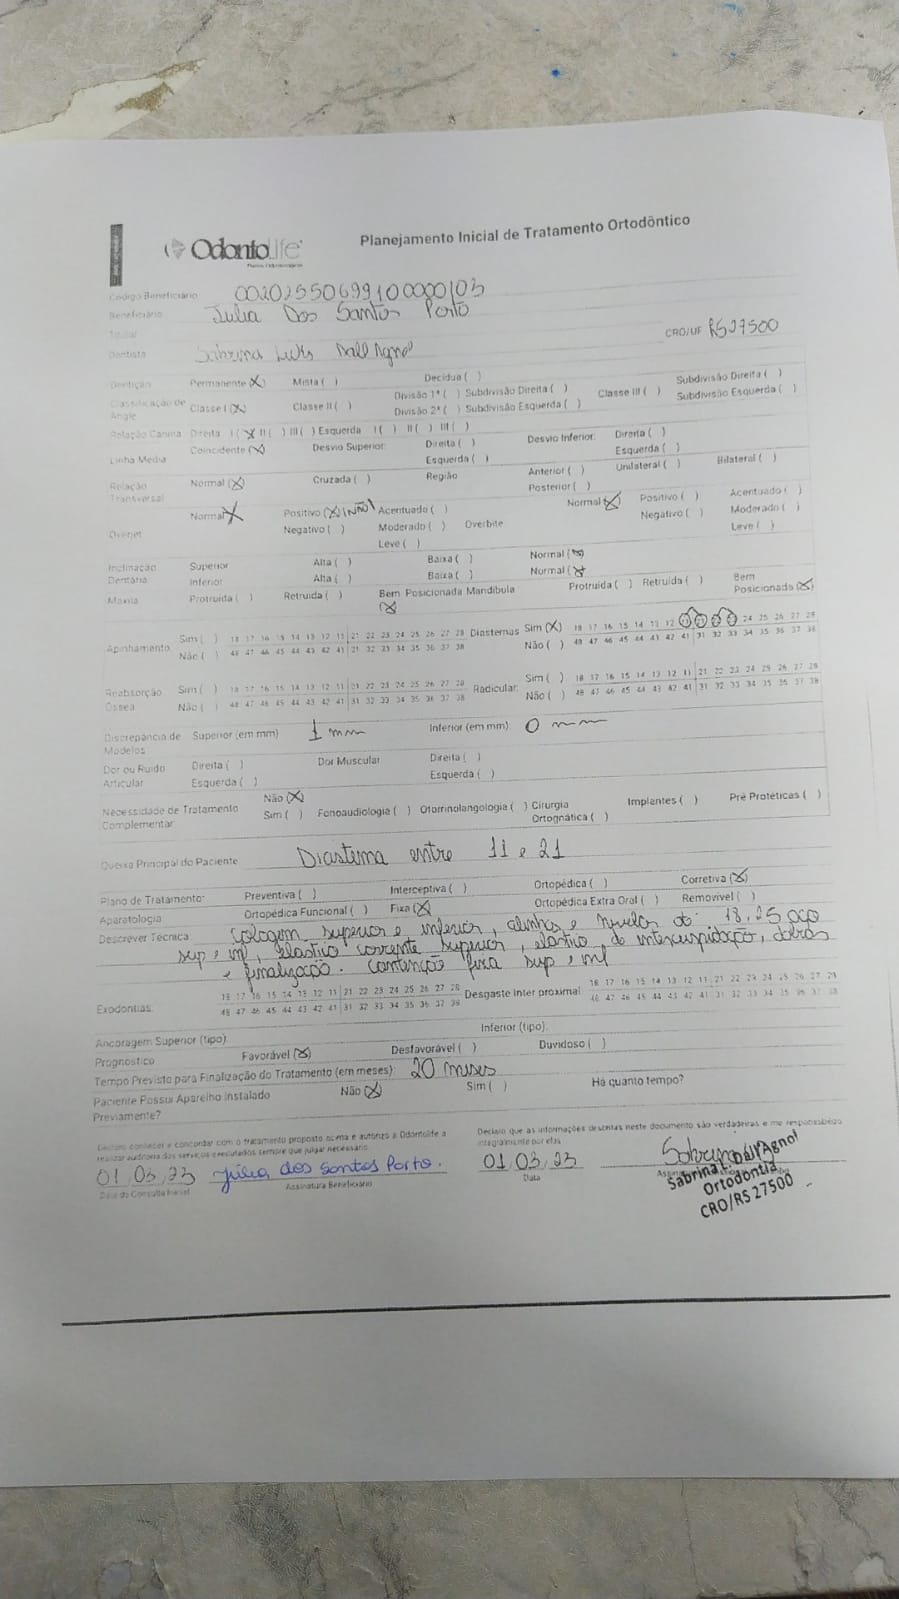 OdontoLife
Planos Odontológicos
Planejamento Inicial de Tratamento Ortodôntico
Código Beneficiário 00202550699100000103
Beneficiário Julia Dos Santos Porto
Titular
CRO/UF RS27500
Dentista Sabrina Dall Agnol
Dentição Permanente (X) Mista ( ) Decídua ( )
Classificação de Angle Classe I (X) Classe II ( ) Divisão 1ª ( ) Subdivisão Direita ( ) Classe III ( ) Subdivisão Direita ( )
Divisão 2ª ( ) Subdivisão Esquerda ( ) Subdivisão Esquerda ( )
Relação Canina Direita I (X) II ( ) III ( ) Esquerda I ( ) II ( ) III ( )
Linha Média Coincidente (X) Desvio Superior: Direita ( ) Desvio Inferior: Direita ( )
Esquerda ( ) Esquerda ( )
Relação Transversal Normal (X) Cruzada ( ) Região Anterior ( ) Unilateral ( ) Bilateral ( )
Posterior ( )
Overjet Normal X Positivo (X) (NÃO) Acentuado ( ) Overbite Normal (X) Positivo ( ) Acentuado ( )
Negativo ( ) Moderado ( ) Negativo ( ) Moderado ( )
Leve ( ) Leve ( )
Inclinação Dentária Superior Alta ( ) Baixa ( ) Normal (X)
Inferior Alta ( ) Baixa ( ) Normal (X)
Maxila Protruída ( ) Retruída ( ) Bem Posicionada (X) Mandíbula Protruída ( ) Retruída ( ) Bem Posicionada (X)
Apinhamento Sim ( ) 18 17 16 15 14 13 12 11 21 22 23 24 25 26 27 28 Diastemas Sim (X) 18 17 16 15 14 13 12 11 21 22 23 24 25 26 27 28
Não ( ) 48 47 46 45 44 43 42 41 31 32 33 34 35 36 37 38 Não ( ) 48 47 46 45 44 43 42 41 31 32 33 34 35 36 37 38
Reabsorção Óssea Sim ( ) 18 17 16 15 14 13 12 11 21 22 23 24 25 26 27 28 Radicular: Sim ( ) 18 17 16 15 14 13 12 11 21 22 23 24 25 26 27 28
Não ( ) 48 47 46 45 44 43 42 41 31 32 33 34 35 36 37 38 Não ( ) 48 47 46 45 44 43 42 41 31 32 33 34 35 36 37 38
Discrepância de Modelos Superior (em mm) 1 mm Inferior (em mm): 0 mm
Dor ou Ruído Articular Direita ( ) Dor Muscular Direita ( )
Esquerda ( ) Esquerda ( )
Necessidade de Tratamento Complementar Não (X)
Sim ( ) Fonoaudiologia ( ) Otorrinolangologia ( ) Cirurgia Ortognática ( ) Implantes ( ) Pré Protéticas ( )
Queixa Principal do Paciente Diastema entre 11 e 21
Plano de Tratamento: Preventiva ( ) Interceptiva ( ) Ortopédica ( ) Corretiva (X)
Aparatologia Ortopédica Funcional ( ) Fixa (X) Ortopédica Extra Oral ( ) Removível ( )
Descrever Técnica Colagem superior e inferior, alinhar e nivelar até 18.25 aço
sup e inf, elastico corrente superior, elastico de intercuspidação, dobras
e finalização. Contenção fixa sup e inf
Exodontias: 18 17 16 15 14 13 12 11 21 22 23 24 25 26 27 28 Desgaste Inter proximal: 18 17 16 15 14 13 12 11 21 22 23 24 25 26 27 28
48 47 46 45 44 43 42 41 31 32 33 34 35 36 37 38 48 47 46 45 44 43 42 41 31 32 33 34 35 36 37 38
Ancoragem Superior (tipo): Inferior (tipo):
Prognóstico Favorável (X) Desfavorável ( ) Duvidoso ( )
Tempo Previsto para Finalização do Tratamento (em meses): 20 meses
Paciente Possui Aparelho Instalado Previamente? Não (X) Sim ( ) Há quanto tempo?
Declaro conhecer e concordar com o tratamento proposto acima e autorizo a Odontolife a
realizar auditoria dos serviços executados sempre que julgar necessário.
Declaro que as informações descritas neste documento são verdadeiras e me responsabilizo
integralmente por elas
01,03,23 Júlia dos Santos Porto.
Data da Consulta Inicial Assinatura Beneficiário
01,03,23
Data
Sabrina Dall'Agnol
Ortodontia
CRO/RS 27500